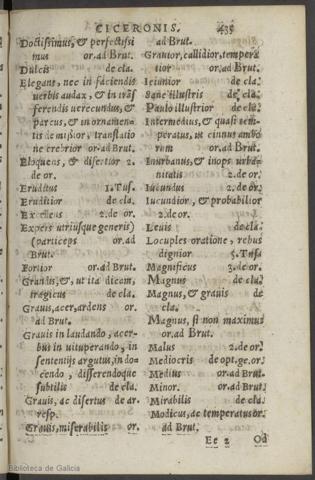 CICERONIS. 435
Doctissimus, & perfectissi
mus or. ad Brut.
Dulcis de cla.
Elegans, nec in faciendis
uerbis audax, & in trãs
ferendis uerecundus, &
parcus, & in ornamen-
tis demissior, translatio
ne crebrior or. ad Brut.
Eloquens, & disertior 2.
de or.
Eruditus 1. Tus.
Eruditior de cla.
Excellens 2. de or.
Expers utriusque generis)
(particeps or. ad
Brut.
Fortior or. ad Brut.
Grandis, &, ut ita dicam,
tragicus de cla.
Grauis, acer, ardens or.
ad Brut.
Grauis in laudando, acer-
bus in uituperando, in
sententijs argutus, in do
cendo, differendoque
subtilis de cla.
Grauis, ac disertus de ar.
resp.
Grauis, miserabilis or.
ad Brut.
Grauior, callidior, tempera
tior or. ad Brut.
Ieiunior de cla.
Sane illustris de cla.
Paulo illustrior de cla.
Intermedius, & quasi tem-
peratus, ut cinnus ambo
rum or. ad Brut.
Inurbanus, & inops urba-
nitatis 2. de or.
Iucundus 2. de or.
Iucundior, & probabilior
2. de or.
Leuis de cla.
Locuples oratione, rebus
dignior 5. Tus.
Magnificus 3. de or.
Magnus de cla.
Magnus, & grauis de
cla.
Magnus, si non maximus
or. ad Brut.
Malus 2. de or.
Mediocris de opt. ge. or.
Medius or. ad Brut.
Minor. or. ad Brut.
Mirabilis de cla.
Modicus, ac temperatus or.
ad Brut.
Ee 2 Od
Biblioteca de Galicia